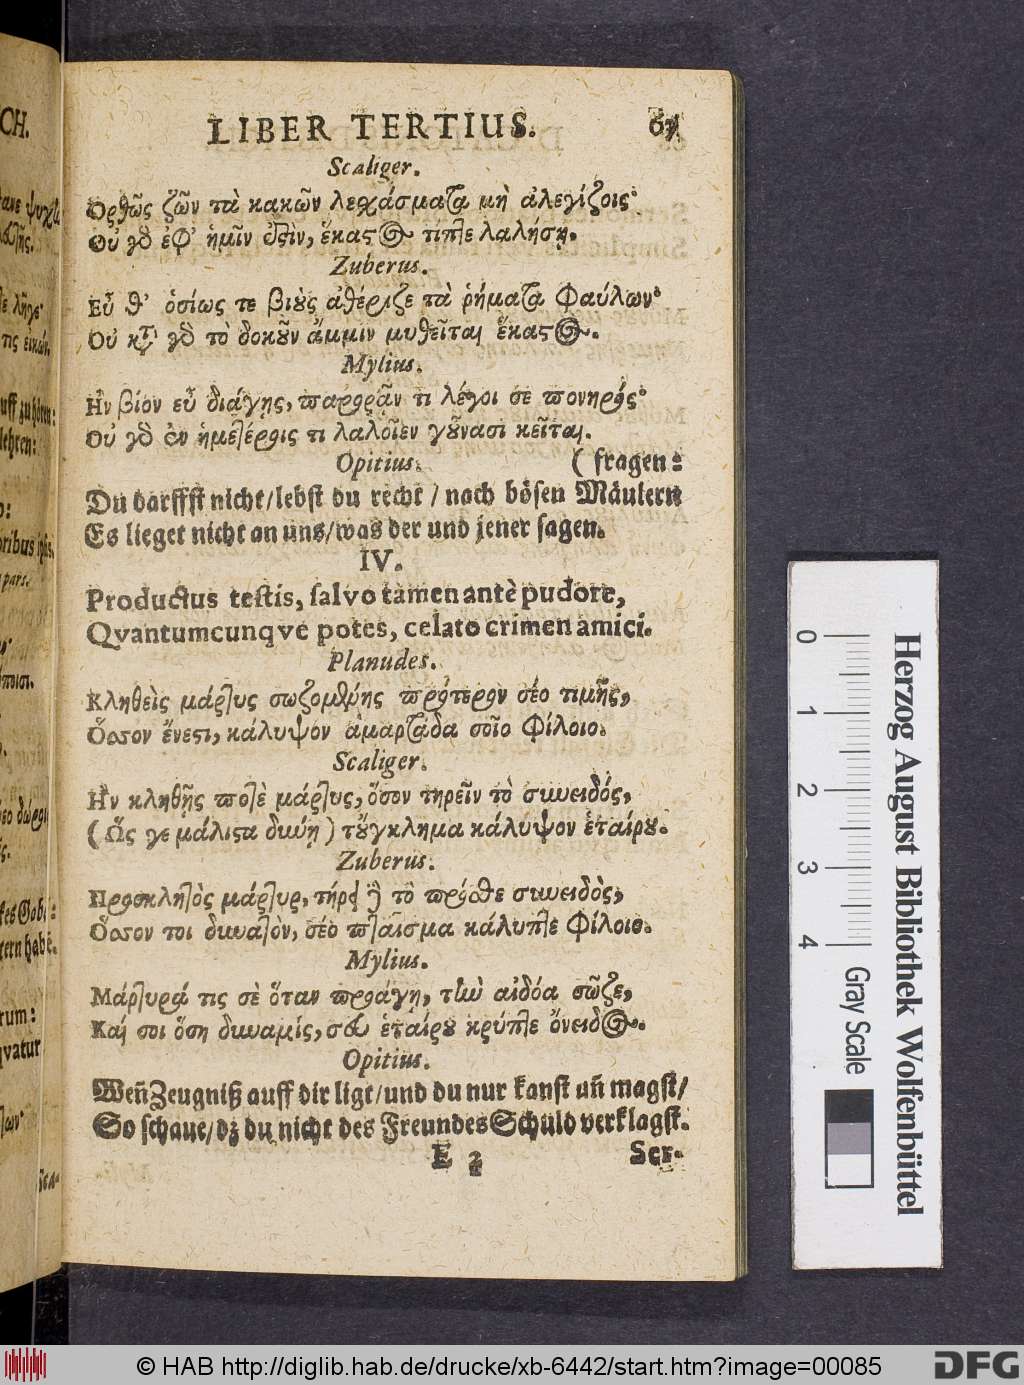 LIBER TERTIUS. 67
Scaliger.
Ὀρθῶς ζῶν τὰ κακῶν λεχάσματα μὴ ἀλεγίζοις·
Οὐ γὸ ἐφ' ἡμῖν ὅτιν, ἕκαστος τίπτε λαλήσῃ.
Zuberus.
Εὖ θ' ὁσίως τε βιοὺς ἀθέριζε τὰ ῥήματα Φαύλων·
Οὐ κατ γὸ τὸ δοκοῦν ἄμμιν μυθεῖται ἕκαστος.
Mylius.
Ην βίον εὖ διάγῃς, παρορᾷν τι λέγοι σε πονηρός·
Οὐ γὸ ἐν ἡμετέροις τι λαλοῖεν γοῦνασι κεῖται.
Opitius. ( fragen:
Du darffst nicht/lebst du recht / nach bösen Mäulern
Es lieget nicht an uns/was der und jener sagen.
IV.
Productus testis, salvo tamen antè pudore,
Qvantumcunqve potes, celato crimen amici.
Planudes.
Κληθεὶς μάρτυς σωζομένης πρότερον σέο τιμῆς,
Ὅσσον ἔνεστι, κάλυψον ἁμαρτάδα σοῖο Φίλοιο.
Scaliger.
Ην κληθῇς ποτὲ μάρτυς, ὅσον τηρεῖν τὸ συνειδός,
(Ὥς γε μάλιστα δυνῄ) τοὔγκλημα κάλυψον ἑταίρου.
Zuberus.
Προσκλητὸς μάρτυρ, τήρει τὸ πρόσθε συνειδὸς,
Ὅσσον τοι δυνατὸν, σέο πταῖσμα κάλυπτε Φίλοιο.
Mylius.
Μάρτυρά τις σὲ ὅταν προάγῃ, τὴν αἰδόα σῶζε,
Καί σοι ὅση δυναμίς, σοῦ ἑταίρου κρύπτε ὄνειδος.
Opitius.
Weñ Zeugniß auff dir ligt/und du nur kanst uñ magst/
So schaue/dz du nicht des Freundes Schuld verklagst.
E 2 Ser-
CH.
uff zu hören:
lehren:
oribus ipse.
pars.
tern habē.
rum:
qvatur
Sca-
0 1 2 3 4
Gray Scale
Herzog August Bibliothek Wolfenbüttel
© HAB http://diglib.hab.de/drucke/xb-6442/start.htm?image=00085
DFG